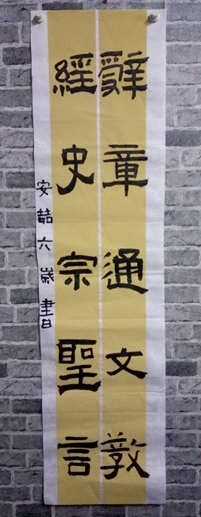 辭章通文敩
經史宗聖言
安喆六歲書